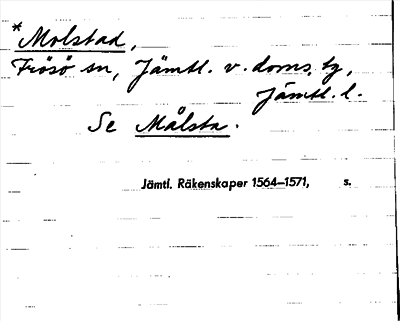 *Molstad,
Frösö sn, Jämtl. v. doms. tg,
Jämtl. l.
Se Målsta.
Jämtl. Räkenskaper 1564–1571, s.